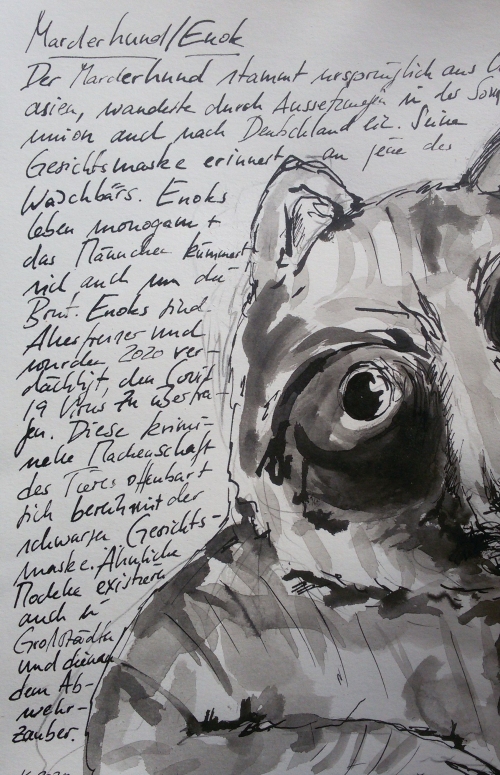 Marderhund/Enok
Der Marderhund stammt ursprünglich aus
asien, wanderte durch Aussetzungen in der
union auch nach Deutschland ein. Seine
Gesichtsmaske erinnert an jene des
Waschbärs. Enoks
leben monogam +
das Männchen kümmert
sich auch um die
Brut. Enoks sind
Allesfresser und
wurden 2020 ver-
dächtigt, den Covid
19 Virus zu übertra-
gen. Diese krimi-
nelle Machenschaft
des Tieres offenbart
sich bereits mit der
schwarzen Gesichts-
maske. Ähnliche
Modelle existieren
auch in
Großstädten
und dienen
dem Ab-
wehr-
zauber.